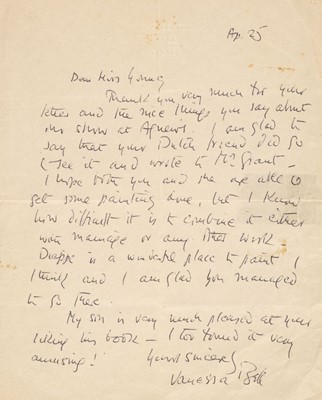 Ap. 25
Dear Miss Young
Thank you very much for your
letter and the nice things you say about
our show at Agnews. I am glad to
say that your Dutch friend did go
to see it and wrote to Mr Grant –
I hope both you and she are able to
get some painting done, but I know
how difficult it is to combine it either
with marriage or any other work –
Dieppe is a wonderful place to paint I
think and I am glad you managed
to go there.
My son is very much pleased at your
liking his book – I too found it very
amusing!
Yours sincerely
Vanessa Bell